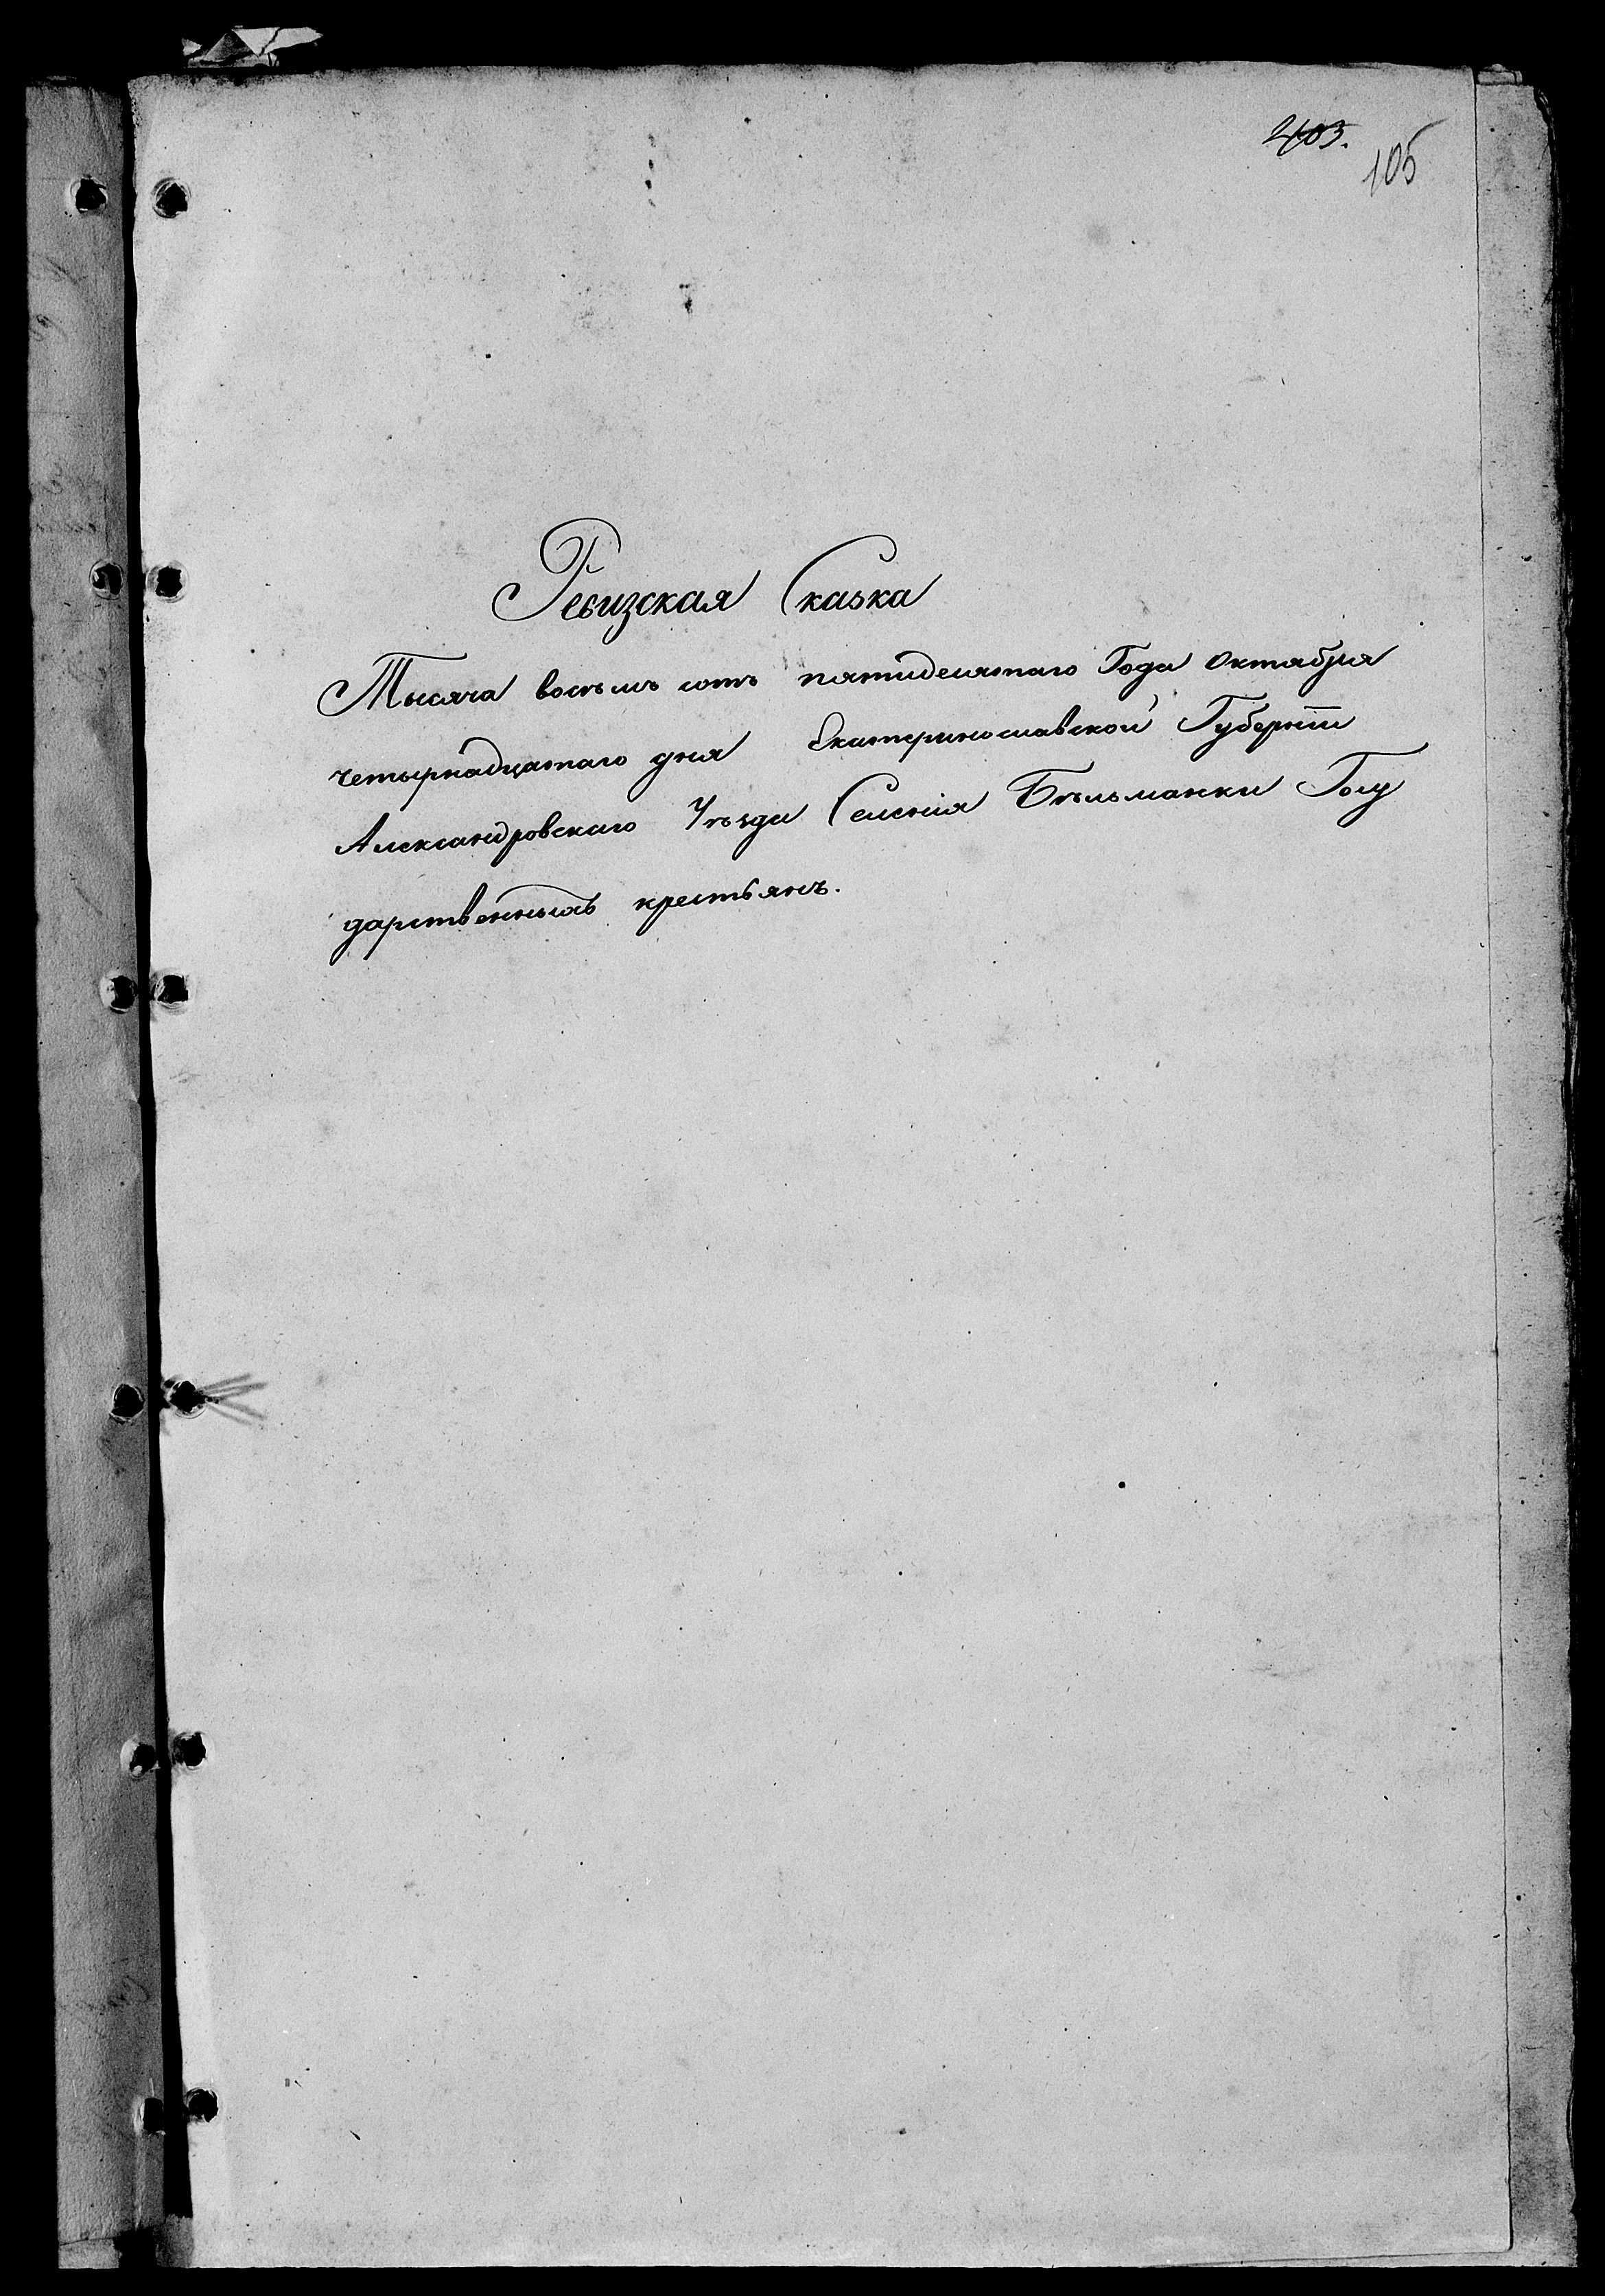 403.
105
Ревизская Сказка
Тысяча восемь сотъ пятидесятаго Года Октября
четырнадцатаго дня Екатеринославской Губерніи
Александровскаго Уѣзда Селенія Бѣльманки Госу
дарственныхъ крестьянъ.